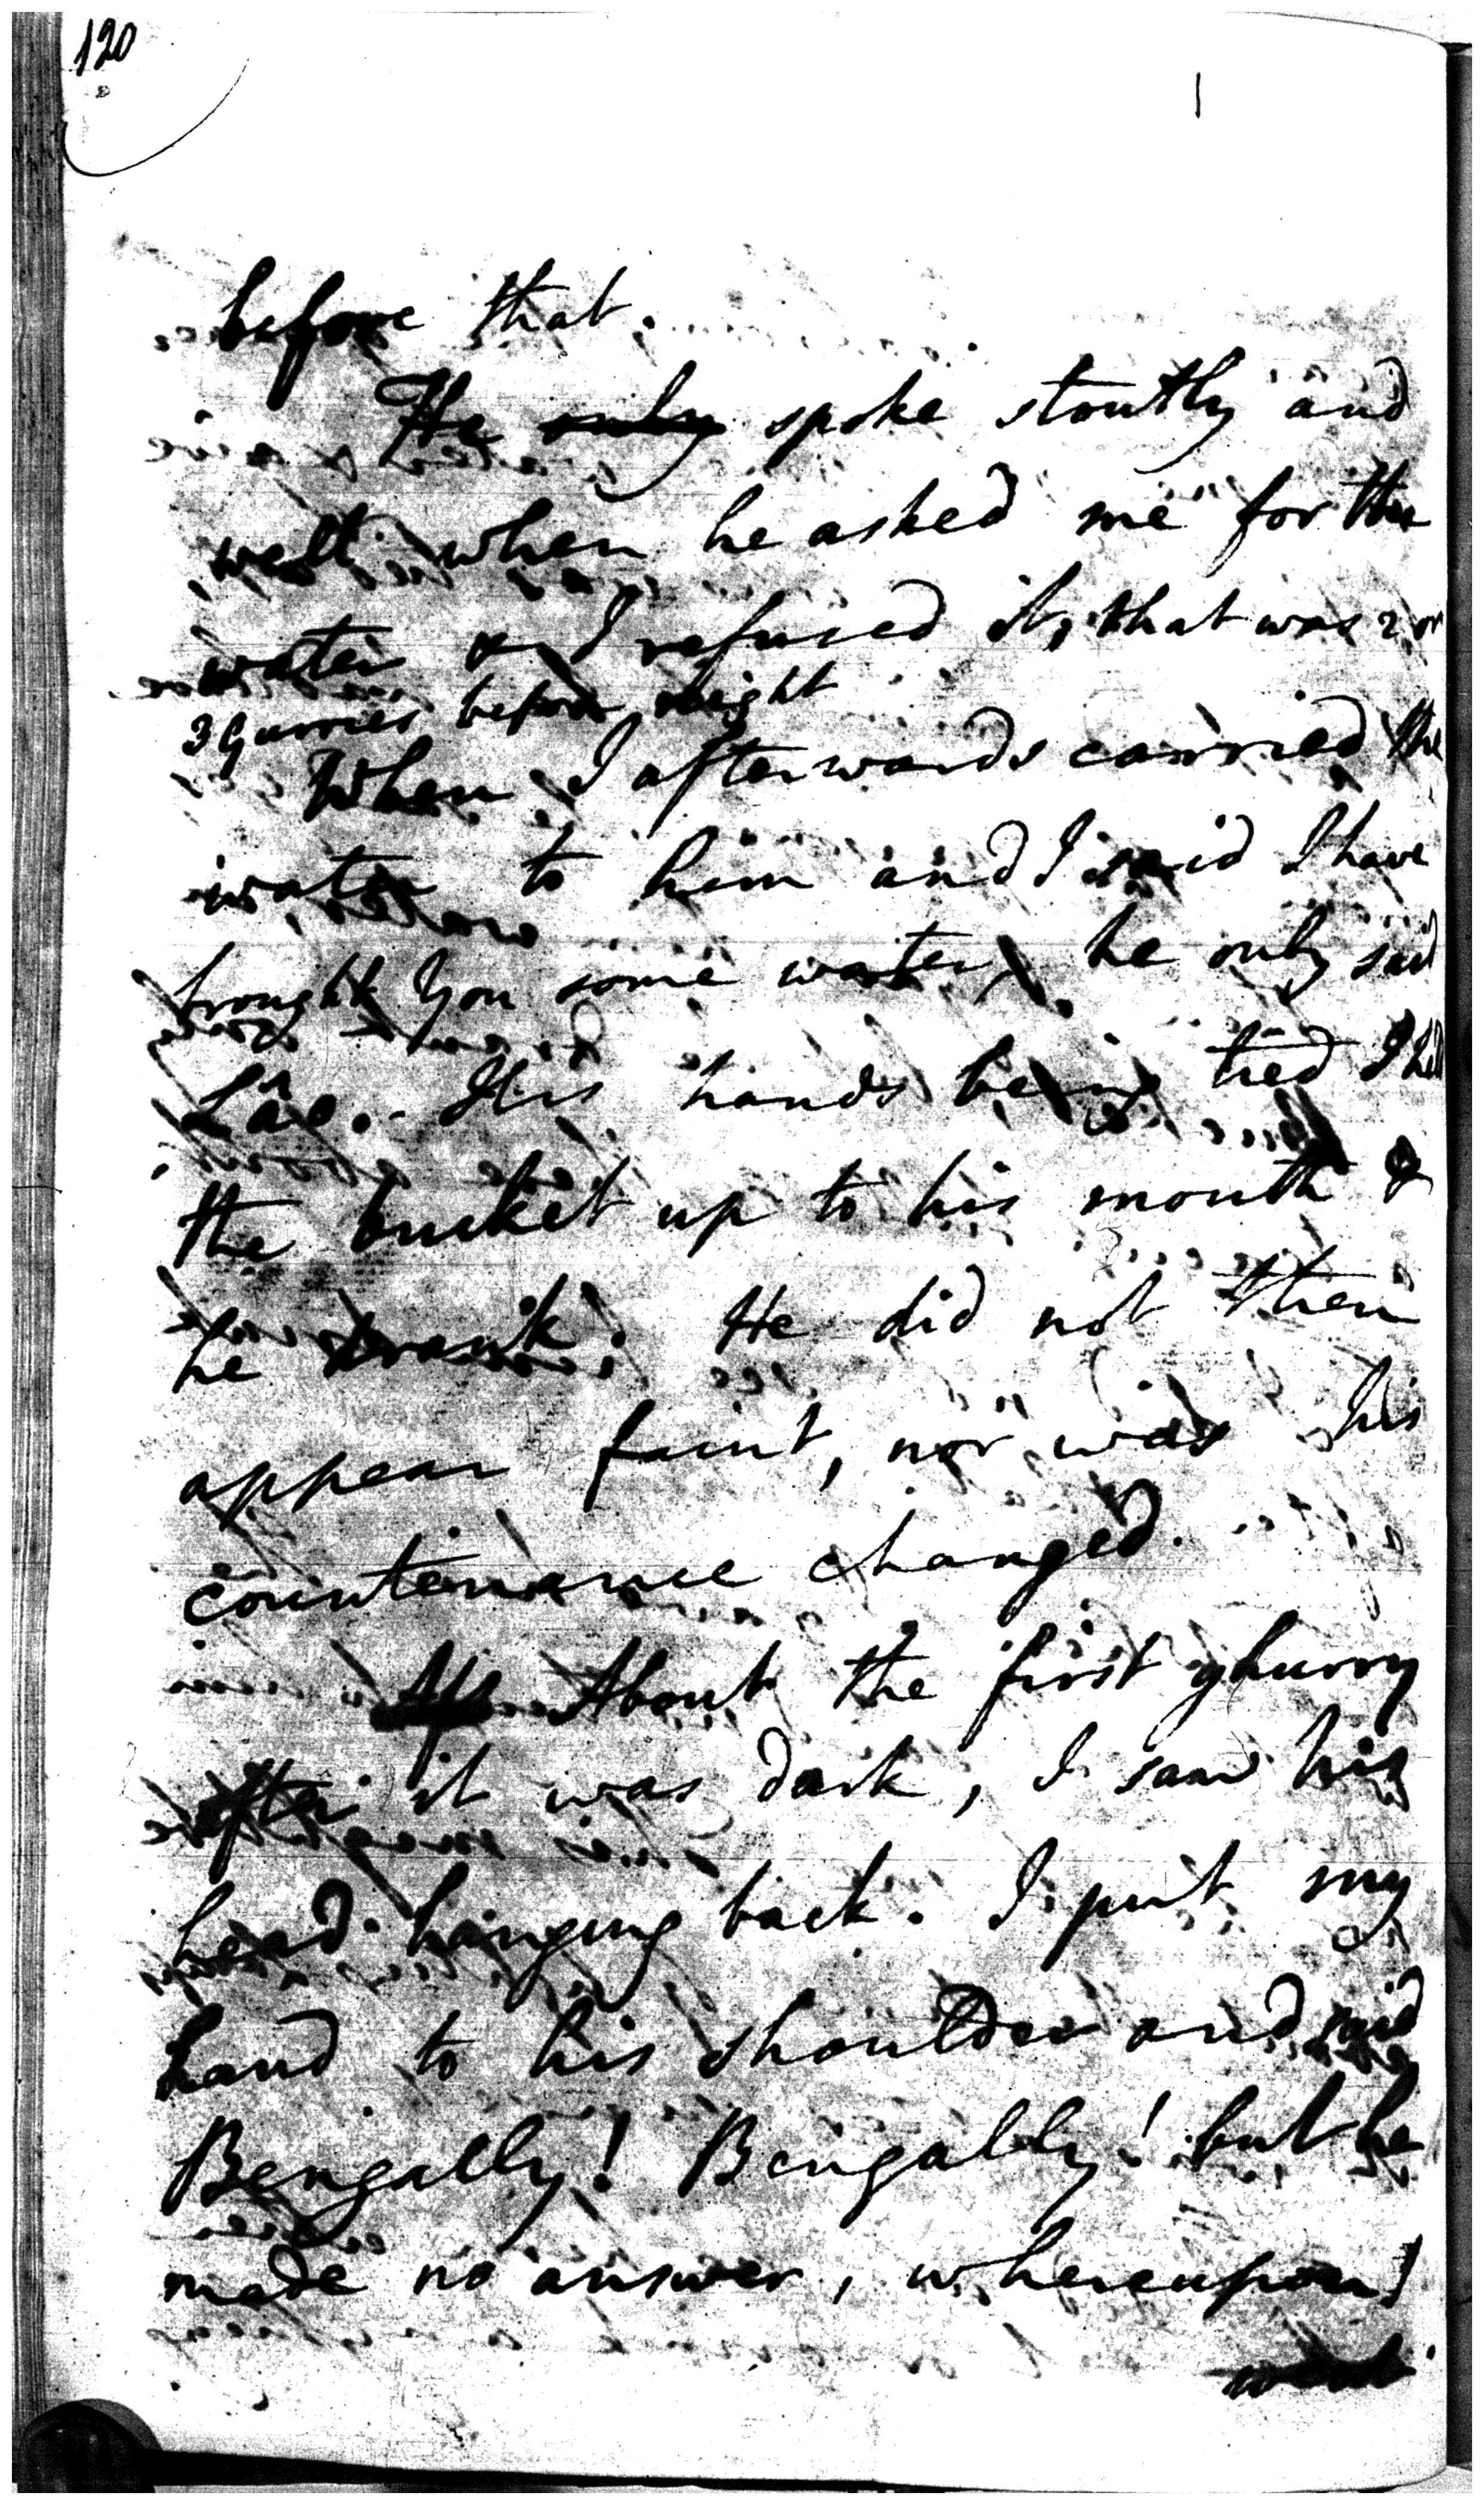 120
before that.
He only spoke stoutly and
well when he asked me for the
water & I refused it, that was 2 or
3 Gurries before night
When I afterwards carried the
water to him and I said I have
brought you some water, he only said
Lâo. - His hands being tied I held
the bucket up to his mouth &
he drank. He did not then
appear faint, nor was his
countenance changed.
About the first ghurry
after it was dark, I saw his
head hanging back. I put my
hand to his shoulder and said
Bengally! Bengally! but he
made no answer, whereupon I
went